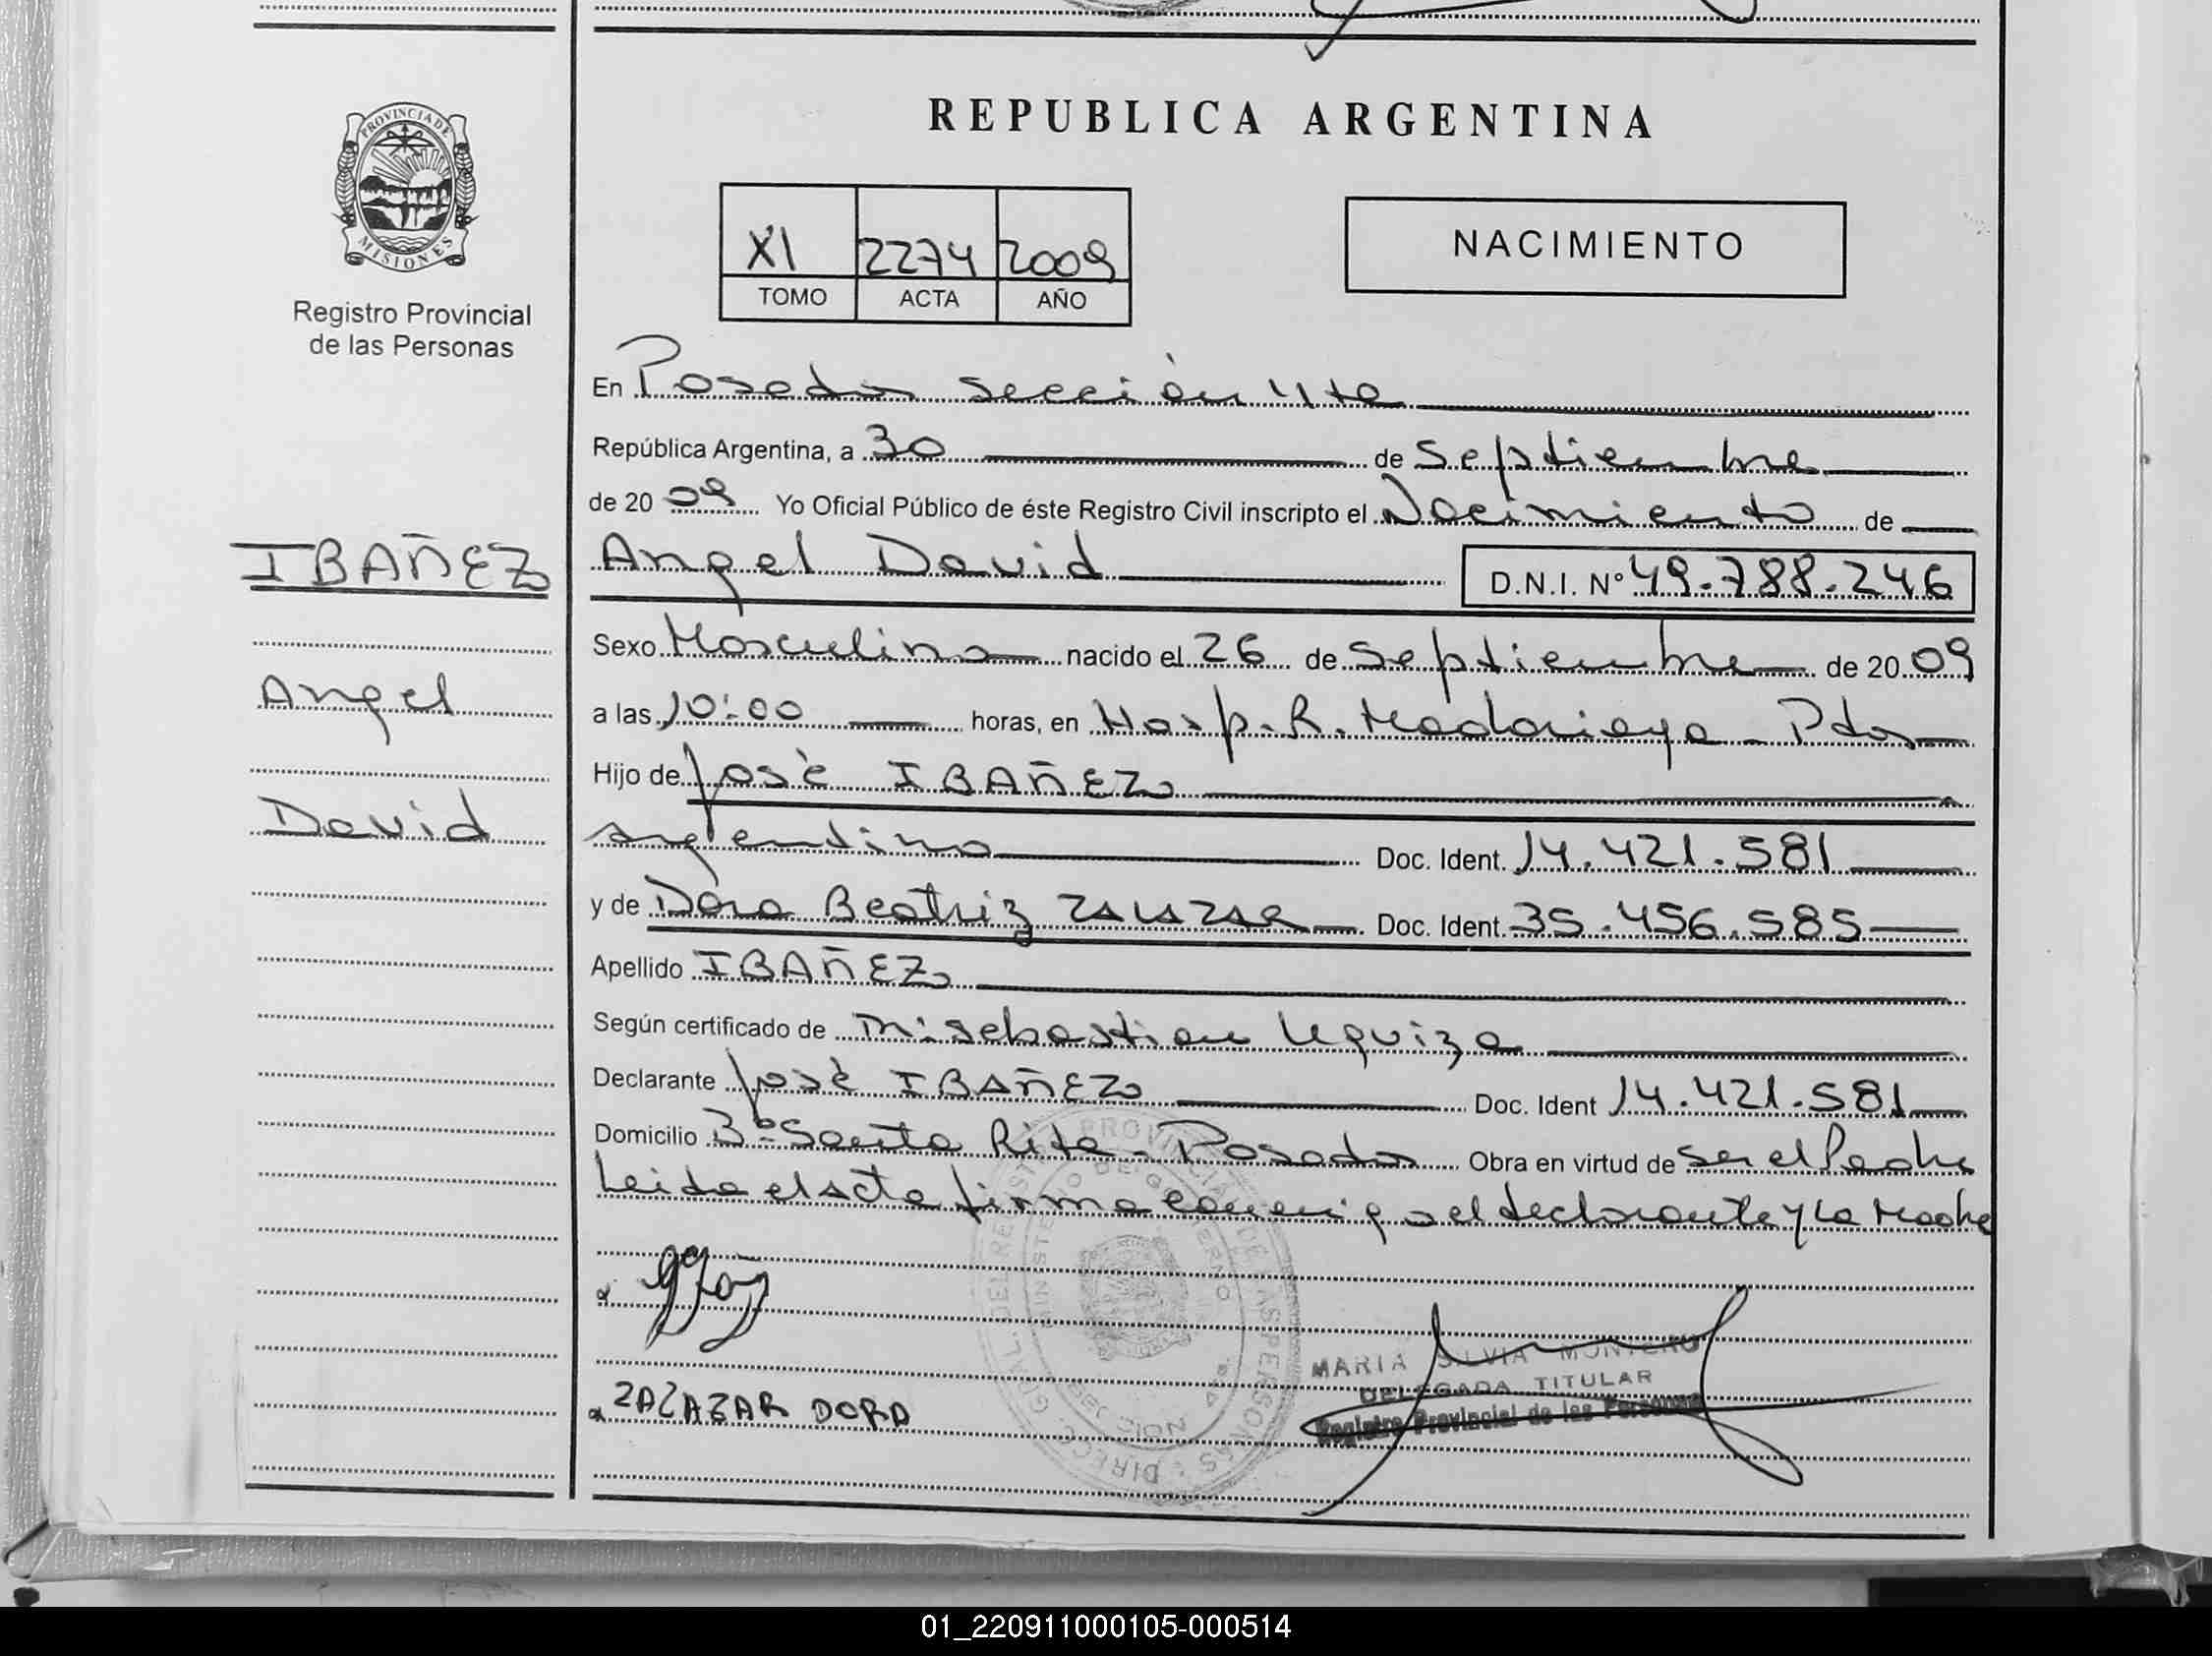 PROVINCIA DE
MISIONES
Registro Provincial
de las Personas
REPUBLICA ARGENTINA
XI 2274 2009
TOMO ACTA AÑO
NACIMIENTO
En Posadas sección 11ta
República Argentina, a 30 de Septiembre
de 2009 Yo Oficial Público de éste Registro Civil inscripto el Nacimiento de
IBAÑEZ
Angel
David
Angel David D.N.I. Nº 49.788.246
Sexo Masculino nacido el 26 de Septiembre de 2009
a las 10:00 horas, en Hosp. R. Madariaga - Pdas
Hijo de José IBAÑEZ
argentino Doc. Ident. 14.421.581
y de Dora Beatriz ZALAZAR Doc. Ident. 35.456.585
Apellido IBAÑEZ
Según certificado de m: Sebastian Uquiza
Declarante José IBAÑEZ Doc. Ident 14.421.581
Domicilio Bº Santa Rita - Posadas Obra en virtud de ser el Padre
Leida el acta firma conmigo el declarante y la Madre
ZALAZAR DORA
MARIA SILVIA MONTERO
DELEGADA TITULAR
Registro Provincial de las Personas
01_220911000105-000514